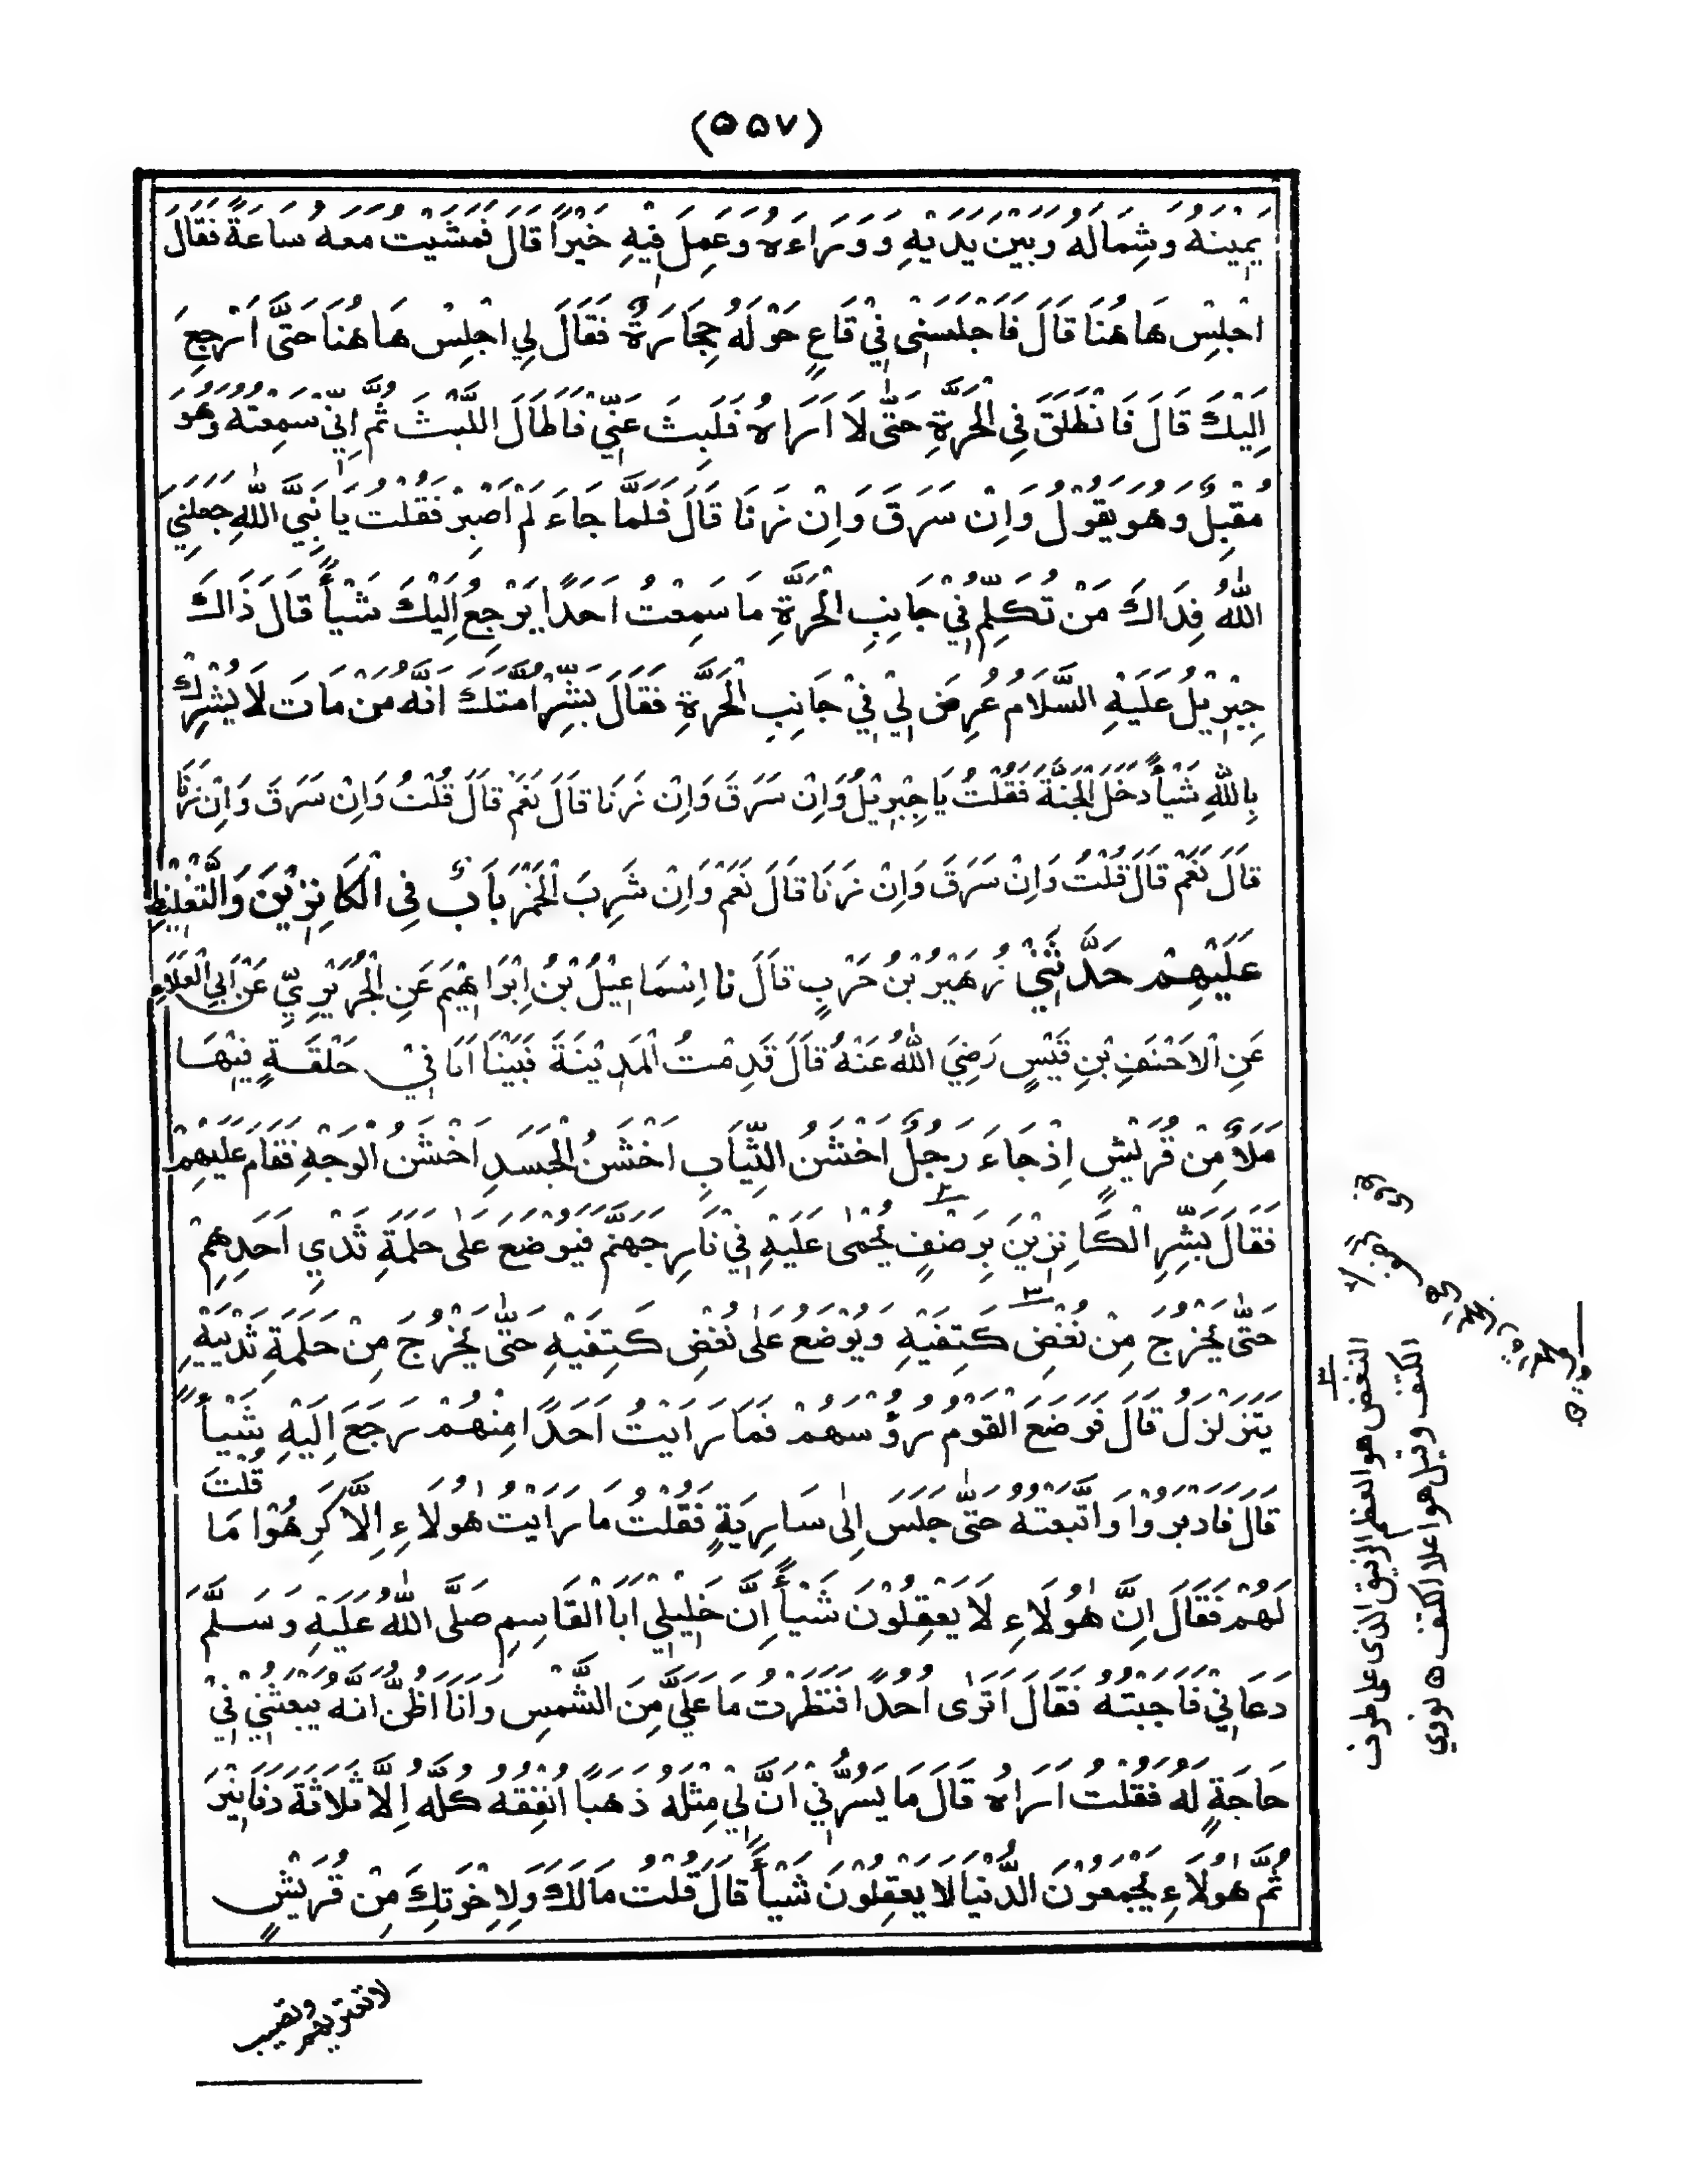 (۵۵۷)
يَمِينَهُ وَشِمَالَهُ وَبَيْنَ يَدَيْهِ وَوَرَاءَهُ وَعَمِلَ فِيْهِ خَيْرًا قَالَ فَمَشَيْتُ مَعَهُ سَاعَةً فَقَالَ
اجْلِسْ هَاهُنَا قَالَ فَاَجْلَسَنِى فِيْ قَاعٍ حَوْلَهُ حِجَارَةٌ فَقَالَ لِي اجْلِسْ هَاهُنَا حَتَّى اَرْجِعَ
اِلَيْكَ قَالَ فَانْطَلَقَ فِى الْحَرَّةِ حَتّٰى لَا اَرَاهُ فَلَبِثَ عَنِّيْ فَاَطَالَ اللَّبْثَ ثُمَّ اِنِّيْ سَمِعْتُهُ وَهُوَ
مُقْبِلٌ وَهُوَ يَقُوْلُ وَاِنْ سَرَقَ وَاِنْ زَنَا قَالَ فَلَمَّا جَاءَ لَمْ اَصْبِرْ فَقُلْتُ يَا نَبِيَّ اللّٰهِ جَعَلَنِيَ
اللّٰهُ فِدَاكَ مَنْ تُكَلِّمُ فِيْ جَانِبِ الْحَرَّةِ مَا سَمِعْتُ اَحَدًا يَرْجِعُ اِلَيْكَ شَيْأً قَالَ ذَاكَ
جِبْرِيْلُ عَلَيْهِ السَّلَامُ عَرَضَ لِيْ فِيْ جَانِبِ الْحَرَّةِ فَقَالَ بَشِّرْ اُمَّتَكَ اَنَّهُ مَنْ مَاتَ لَا يُشْرِكُ
بِاللّٰهِ شَيْأً دَخَلَ الْجَنَّةَ فَقُلْتُ يَا جِبْرِيْلُ وَاِنْ سَرَقَ وَاِنْ زَنَا قَالَ نَعَمْ قَالَ قُلْتُ وَاِنْ سَرَقَ وَاِنْ زَنَا
قَالَ نَعَمْ قَالَ قُلْتُ وَاِنْ سَرَقَ وَاِنْ زَنَا قَالَ نَعَمْ وَاِنْ شَرِبَ الْخَمْرَ بَابٌ فِى الْكَانِزِيْنَ وَالتَّغْلِيْظِ
عَلَيْهِمْ حَدَّثَنِيْ زُهَيْرُ بْنُ حَرْبٍ قَالَ نا اِسْمَاعِيْلُ بْنُ اِبْرَاهِيْمَ عَنِ الْجُرَيْرِيِّ عَنْ اَبِي الْعَلَاءِ
عَنِ الْاَحْنَفِ بْنِ قَيْسٍ رَضِيَ اللّٰهُ عَنْهُ قَالَ قَدِمْتُ الْمَدِيْنَةَ فَبَيْنَا اَنَا فِيْ حَلْقَةٍ فِيْهَا
مَلَأٌ مِنْ قُرَيْشٍ اِذْ جَاءَ رَجُلٌ اَخْشَنُ الثِّيَابِ اَخْشَنُ الْجَسَدِ اَخْشَنُ الْوَجْهِ فَقَامَ عَلَيْهِمْ
فَقَالَ بَشِّرِ الْكَانِزِيْنَ بِرَضْفٍ يُحْمٰى عَلَيْهِ فِيْ نَارِ جَهَنَّمَ فَيُوْضَعُ عَلٰى حَلَمَةِ ثَدْيِ اَحَدِهِمْ
حَتّٰى يَخْرُجَ مِنْ نُغْضِ كَتِفَيْهِ وَيُوْضَعُ عَلٰى نُغْضِ كَتِفَيْهِ حَتّٰى يَخْرُجَ مِنْ حَلَمَةِ ثَدْيَيْهِ
يَتَزَلْزَلُ قَالَ فَوَضَعَ الْقَوْمُ رُؤُسَهُمْ فَمَا رَاَيْتُ اَحَدًا مِنْهُمْ رَجَعَ اِلَيْهِ شَيْأً
قَالَ فَاَدْبَرَ وَاتَّبَعْتُهُ حَتّٰى جَلَسَ اِلٰى سَارِيَةٍ فَقُلْتُ مَا رَاَيْتُ هٰؤُلَاءِ اِلَّا كَرِهُوْا مَا قُلْتَ
لَهُمْ فَقَالَ اِنَّ هٰؤُلَاءِ لَا يَعْقِلُوْنَ شَيْأً اِنَّ خَلِيْلِيْ اَبَا الْقَاسِمِ صَلَّى اللّٰهُ عَلَيْهِ وَسَلَّمَ
دَعَانِيْ فَاَجَبْتُهُ فَقَالَ اَتَرٰى اُحُدًا فَنَظَرْتُ مَا عَلَيَّ مِنَ الشَّمْسِ وَاَنَا اَظُنُّ اَنَّهُ يَبْعَثُنِيْ فِيْ
حَاجَةٍ لَهُ فَقُلْتُ اَرَاهُ قَالَ مَا يَسُرُّنِيْ اَنَّ لِيْ مِثْلَهُ ذَهَبًا اُنْفِقُهُ كُلَّهُ اِلَّا ثَلَاثَةَ دَنَانِيْرَ
ثُمَّ هٰؤُلَاءِ يَجْمَعُوْنَ الدُّنْيَا لَا يَعْقِلُوْنَ شَيْأً قَالَ قُلْتُ مَا لَكَ وَلِاِخْوَتِكَ مِنْ قُرَيْشٍ
لا تعتريهم وتصيب
النغض هو العظم الرقيق الذى على طرف
الكتف وقيل هو اعلا الكتف ٥ نووي